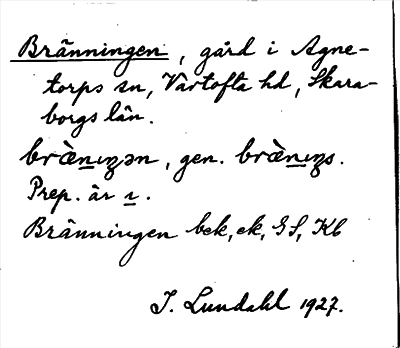 Bränningen, gård i Agne-
torps sn, Vartofta hd, Skara-
borgs län.
brὲnıŋən, gen. brὲnıŋs.
Prep. är ı.
Bränningen bek, ek, GS, Kb
J. Lundahl 1927.